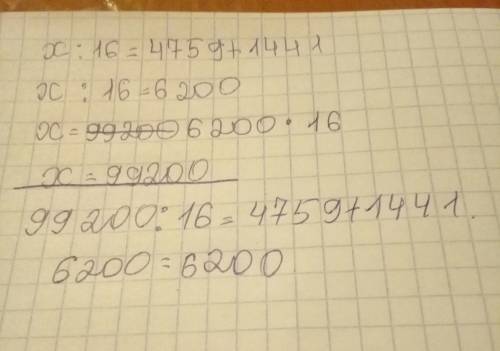 x : 16 = 4759 + 1441
x : 16 = 6200
x = 99200 6200 · 16
x = 99200
99200 : 16 = 4759 + 1441.
6200 = 6200